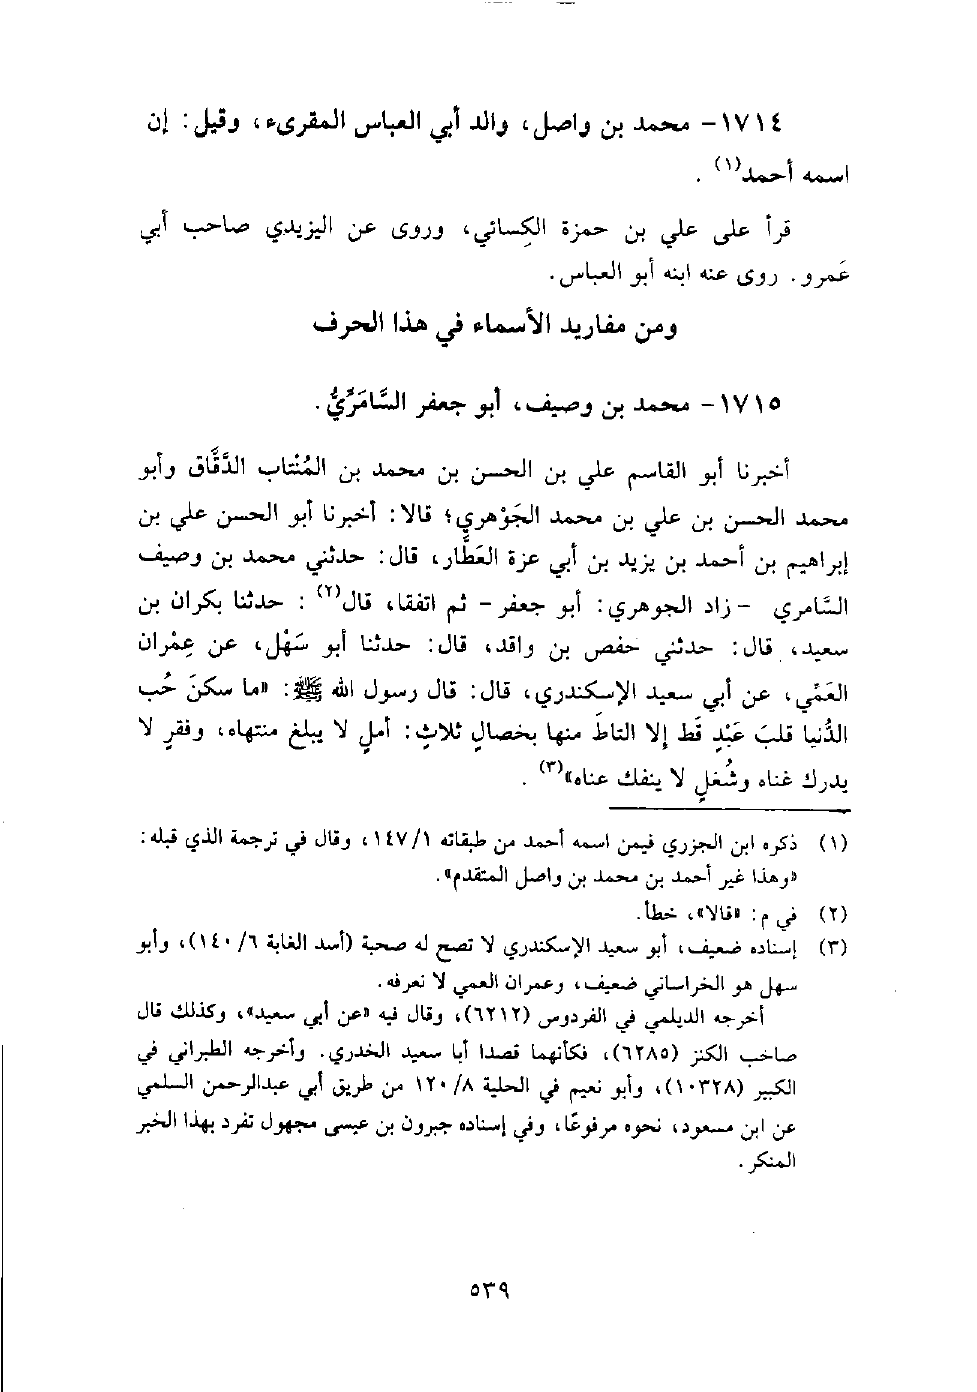 ١٧١٤- محمد بن واصل، والد أبي العباس المقرىء، وقيل: إن
اسمه أحمد(١).
قرأ على علي بن حمزة الكِسائي، وروى عن اليزيدي صاحب أبي
عَمرو. روى عنه ابنه أبو العباس.
ومن مفاريد الأسماء في هذا الحرف
١٧١٥- محمد بن وصيف، أبو جعفر السَّامَرِّيُّ.
أخبرنا أبو القاسم علي بن الحسن بن محمد بن المُنْتاب الدَّقَّاق وأبو
محمد الحسن بن علي بن محمد الجَوْهري؛ قالا: أخبرنا أبو الحسن علي بن
إبراهيم بن أحمد بن يزيد بن أبي عزة العَطَّار، قال: حدثني محمد بن وصيف
السَّامري - زاد الجوهري: أبو جعفر - ثم اتفقا، قال(٢): حدثنا بكران بن
سعيد، قال: حدثني حفص بن واقد، قال: حدثنا أبو سَهْل، عن عِمْران
العَمِّي، عن أبي سعيد الإسكندري، قال: قال رسول الله ﷺ: «ما سكنَ حُب
الدُّنيا قلبَ عَبْدٍ قَط إلا التاطَ منها بخصالٍ ثلاثٍ: أملٍ لا يبلغ منتهاه، وفقرٍ لا
يدرك غناه وشُغلٍ لا ينفك عناه»(٣).
(١) ذكره ابن الجزري فيمن اسمه أحمد من طبقاته ١/ ١٤٧، وقال في ترجمة الذي قبله:
«وهذا غير أحمد بن محمد بن واصل المتقدم».
(٢) في م: «قالا»، خطأ.
(٣) إسناده ضعيف، أبو سعيد الإسكندري لا تصح له صحبة (أسد الغابة ٦/ ١٤٠)، وأبو
سهل هو الخراساني ضعيف، وعمران العمي لا نعرفه.
أخرجه الديلمي في الفردوس (٦٢١٢)، وقال فيه «عن أبي سعيد»، وكذلك قال
صاحب الكنز (٦٢٨٥)، فكأنهما قصدا أبا سعيد الخدري. وأخرجه الطبراني في
الكبير (١٠٣٢٨)، وأبو نعيم في الحلية ٨/ ١٢٠ من طريق أبي عبدالرحمن السلمي
عن ابن مسعود، نحوه مرفوعًا، وفي إسناده جبرون بن عيسى مجهول تفرد بهذا الخبر
المنكر.
٥٣٩